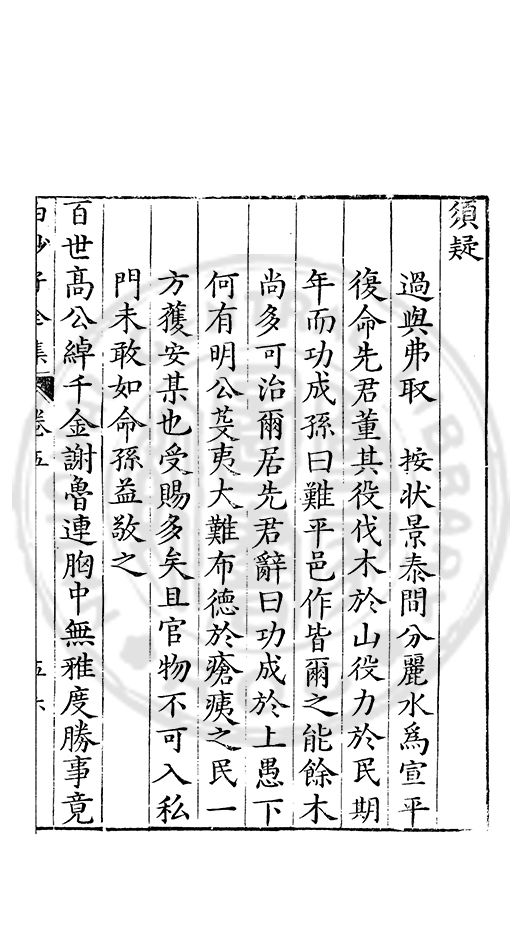 須疑
過與弗取　按状景泰間分麗水爲宣平
復命先君董其役伐木於山役力於民期
年而功成孫曰難平邑作皆爾之能餘木
尚多可治爾居先君辭曰功成於上愚下
何有明公芟夷大難布德於瘡痍之民一
方獲安某也受賜多矣且官物不可入私
門未敢如命孫益敬之
百世高公綽千金謝魯連胸中無雅度勝事竟
白沙子全集　卷五　五六